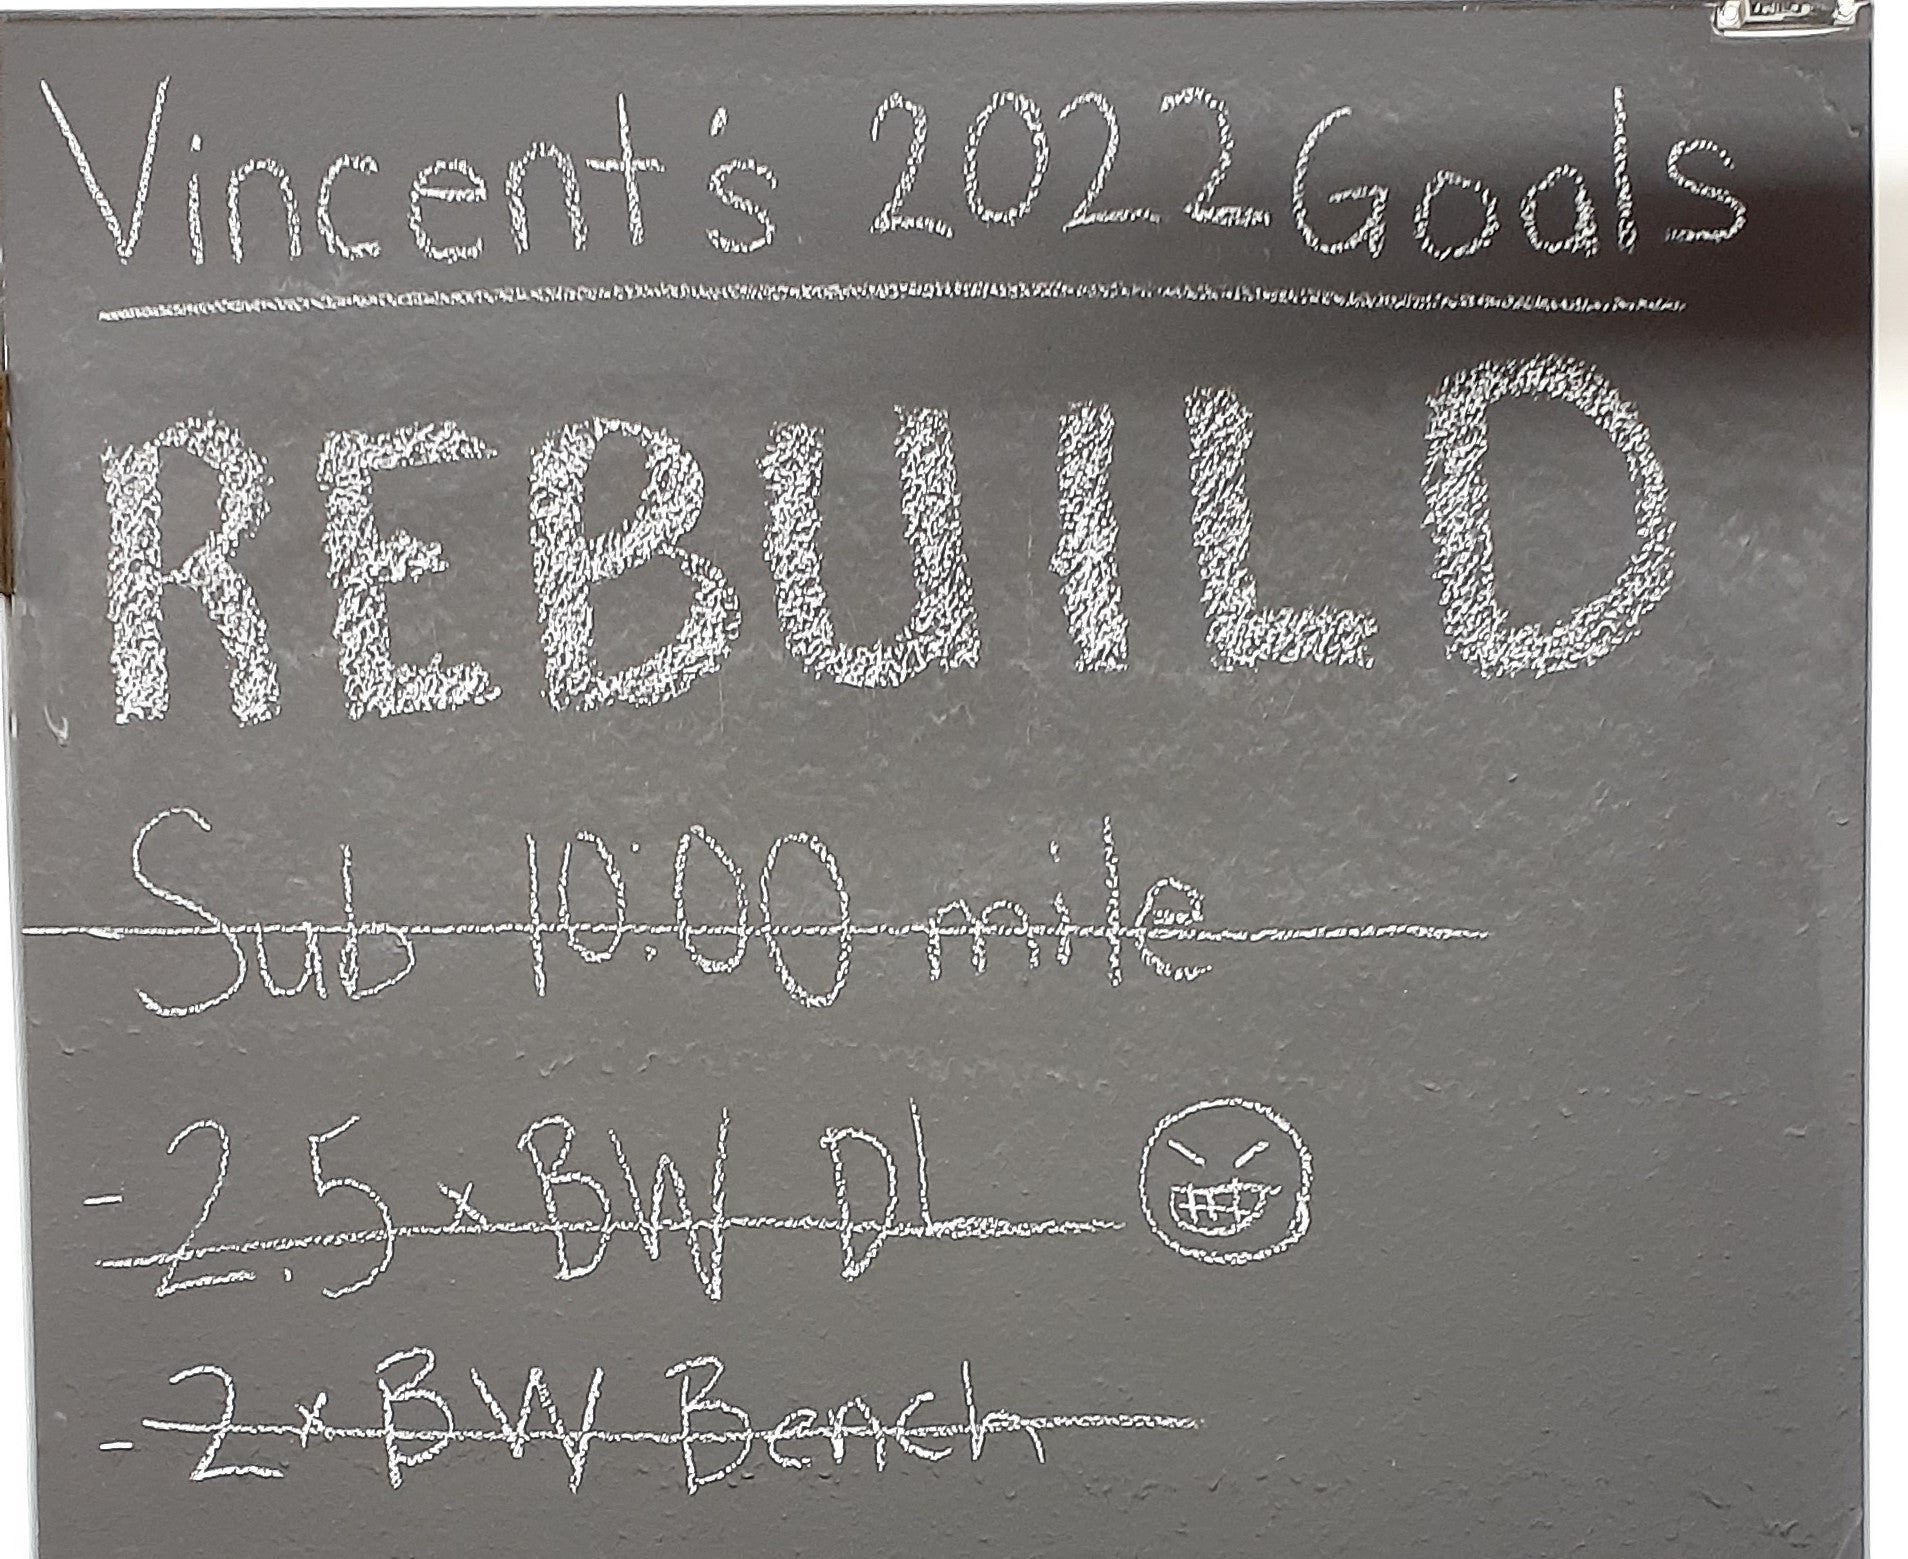 Vincent's 2022 Goals
REBUILD
Sub 10:00 mile
- 2.5 x BW DL
- 2 x BW Bench